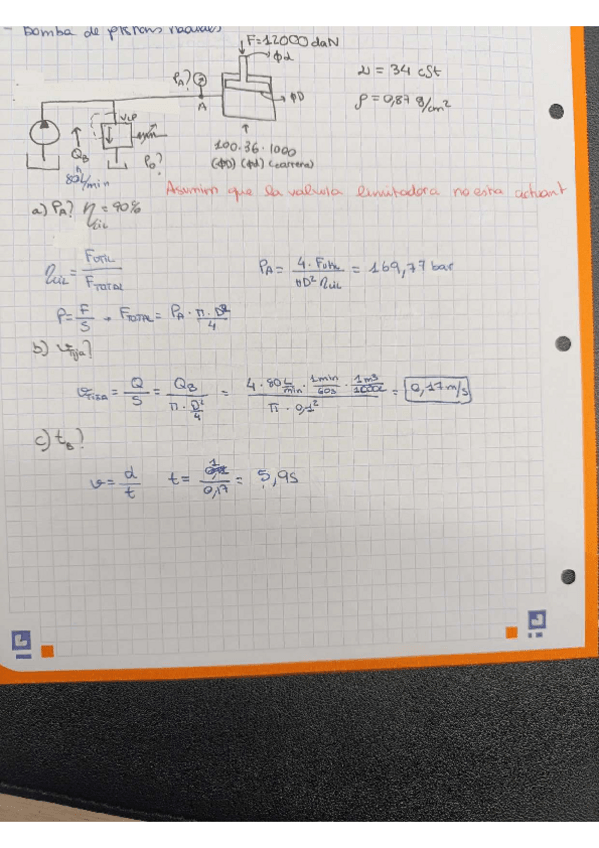 - Bomba de pistons radials
F=12000 daN
φd
PA?
A
φD
ν = 34 cSt
ρ = 0,87 g/cm²
VLP
QB
80 L/min
P0?
100·36·1000
(φD) (φd) (carrera)
Asumim que la valvula limitadora no esta actuant
a) PA? ηcil = 90%
ηcil = Futil / FTOTAL
PA = 4·Futil / πD² ηcil = 169,77 bar
P = F/S → FTOTAL = PA · π·D²/4
b) vfija?
vfixa = Q/S = QB / π·D²/4 = 4·80 L/min · 1min/60s · 1m³/1000L / π·0,1² = 0,17 m/s
c) ts?
v = d/t t = 1/0,17 = 5,9s